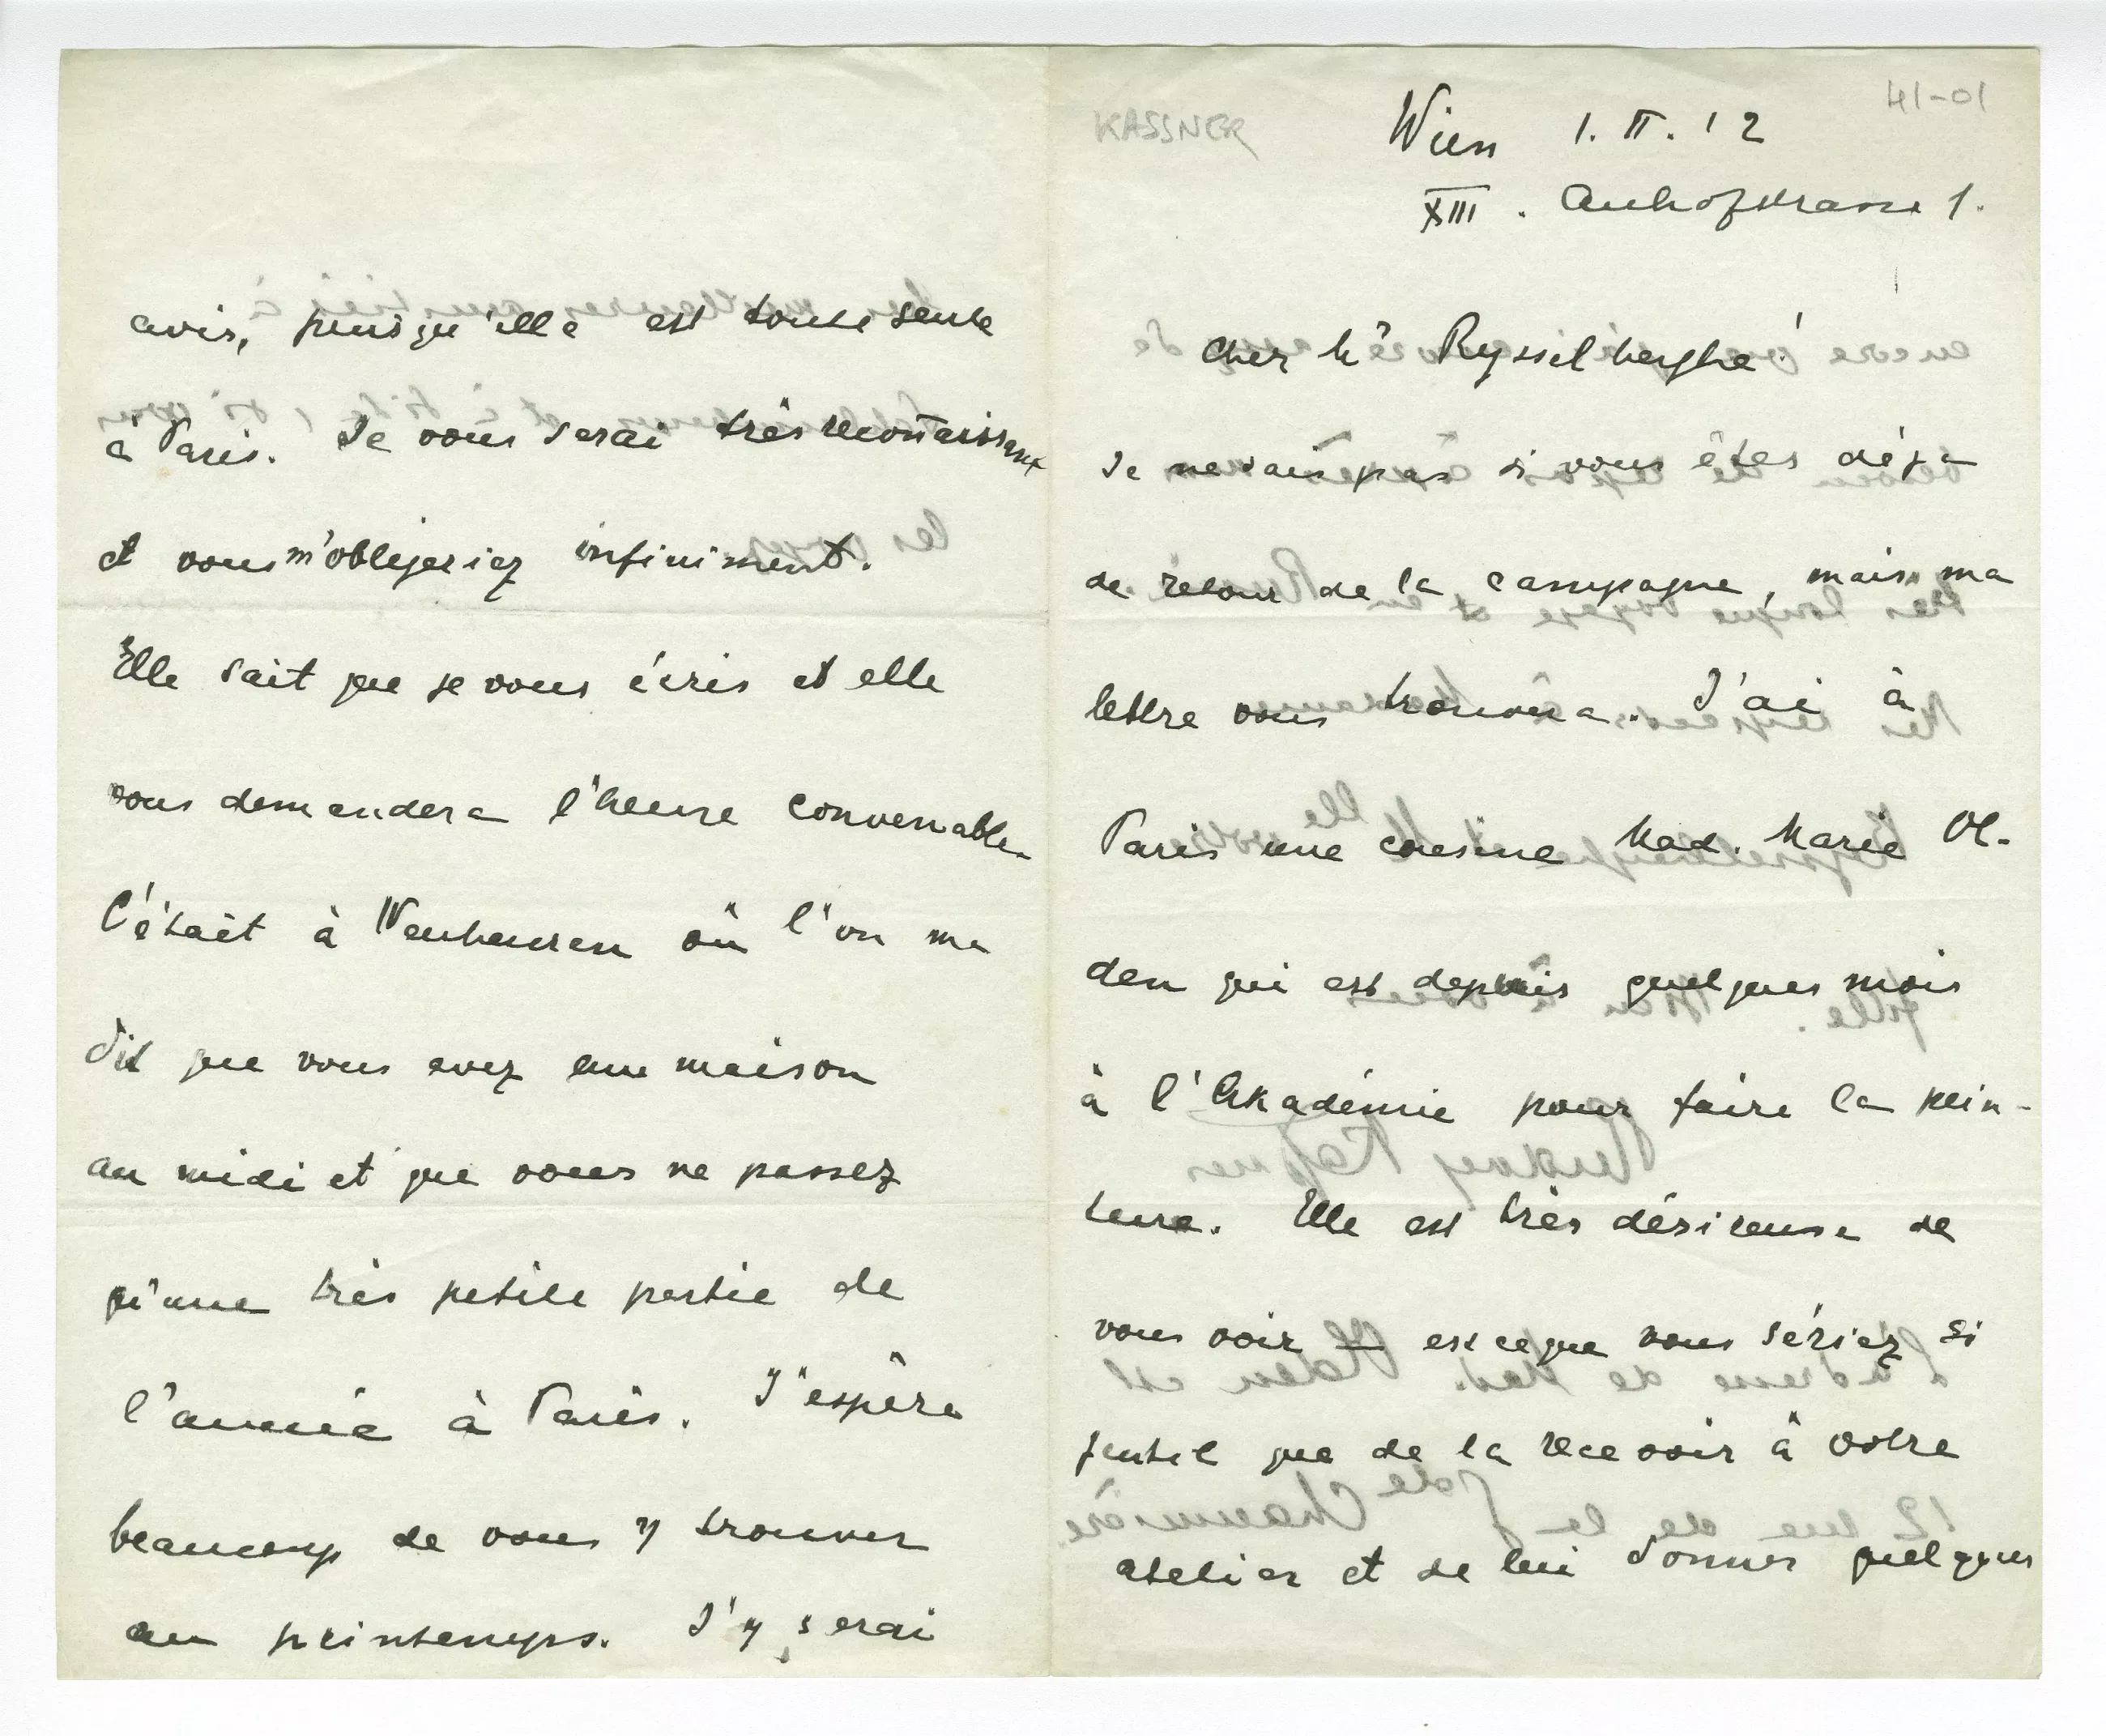 KASSNER
41-01
Wien 1.II.12
XIII. Auhofstrasse 1.
Cher Mr Rysselberghe!
Je ne sais pas si vous êtes déja
de retour de la campagne, mais ma
lettre vous trouvera. J'ai à
Paris une cousine Mad. Marie Ol-
den qui est depuis quelques mois
à l'Akadémie pour faire la pein-
ture. Elle est très désireuse de
vous voir – est ce que vous sériez si
gentil que de la recevoir à votre
atelier et de lui donner quelques
avis, puisqu'elle est toute seule
à Paris. Je vous serai très reconnaissant
et vous m'obligeriez infiniment.
Elle sait que je vous écris et elle
vous demandera l'heure convenable.
C'était à Neubeuren où l'on me
dit que vous avez une maison
au midi et que vous ne passez
qu'une très petite partie de
l'année à Paris. J'espère
beaucoup de vous y trouver
au printemps. J'y serai